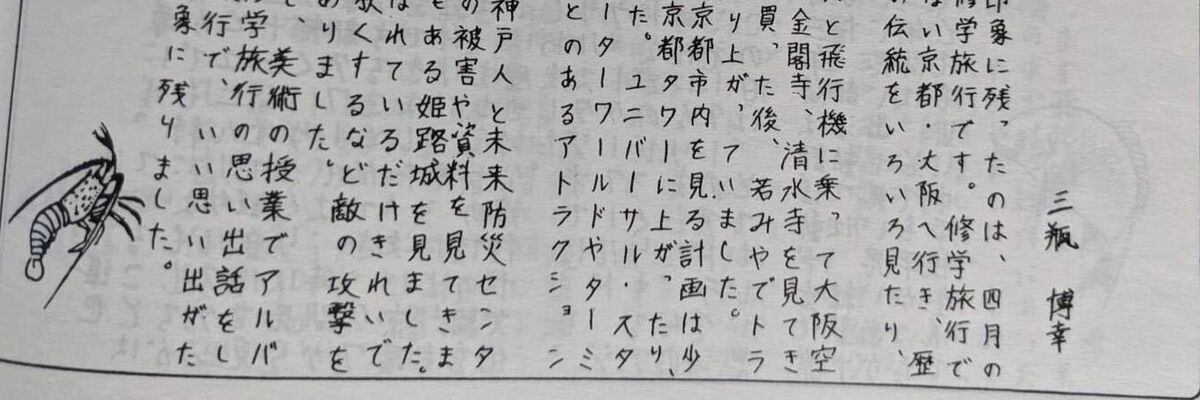 三瓶 博幸
印象に残ったのは、四月の
修学旅行です。修学旅行で
ない京都・大阪へ行き、歴
の伝統をいろいろ見たり、
と飛行機に乗って大阪空
金閣寺、清水寺を見てき
買った後、若みやでトラ
り上がっていました。
京都市内を見る計画は少
京都タワーに上がったり、
た。ユニバーサル・スタ
ーターワールドやターミ
とのあるアトラクション
神戸人と未来防災センタ
の被害や資料を見てきま
もある姫路城を見ました。
なれているだけきれいで
狭くするなど敵の攻撃を
ありました。
、美術の授業でアルバ
学旅行の思い出話をし
行で、いい思い出がた
象に残りました。